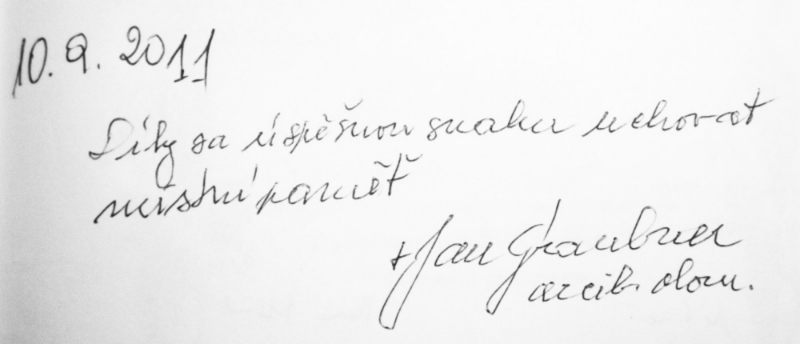 10. 9. 2011
Díky za úspěšnou snahu uchovat
místní paměť
+Jan Graubner
arcib. olom.